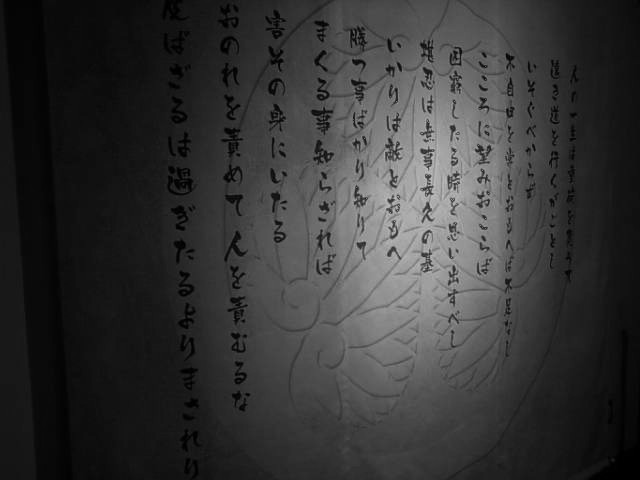 人の一生は重荷を負うて
遠き道を行くがごとし
いそぐべからず
不自由を常とおもへば不足なし
こころに望みおこらば
困窮したる時を思い出すべし
堪忍は無事長久の基
いかりは敵とおもへ
勝つ事ばかり知りて
まくる事知らざれば
害その身にいたる
おのれを責めて人を責むるな
及ばざるは過ぎたるよりまされり